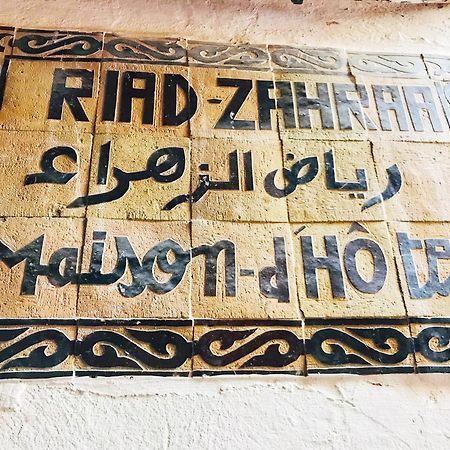 RIAD-ZAHRAA
رياض الزهراء
Maison-d'Hôte